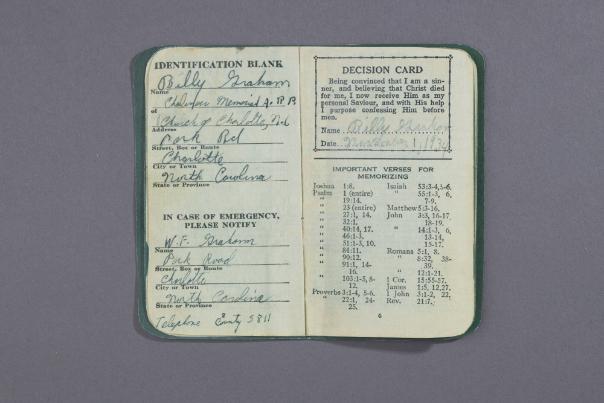 IDENTIFICATION BLANK
Billy Graham
Name
Memorial A. R. P.
of
Church of Charlotte, N.C.
Address
Park Rd
Street, Box or Route
Charlotte
City or Town
North Carolina
State or Province
IN CASE OF EMERGENCY,
PLEASE NOTIFY
W. F. Graham
Name
Park Road
Street, Box or Route
Charlotte
City or Town
North Carolina
State or Province
Telephone County 3811
DECISION CARD
Being convinced that I am a sin-
ner, and believing that Christ died
for me, I now receive Him as my
personal Saviour, and with His help
I purpose confessing Him before
men.
Name Billy Graham
Date November 1, 1934
IMPORTANT VERSES FOR
MEMORIZING
Joshua 1:8.
Psalm 1 (entire)
" 19:14.
" 23 (entire)
" 27:1, 14.
" 32:1.
" 40:14, 17.
" 46:1-3.
" 51:1-3, 10.
" 84:11.
" 90:12.
" 91:1, 14-
16.
" 103:1-5, 8-
12.
Proverbs 3:1-4, 5-6.
" 22:1, 24-
25.
Isaiah 53:3-4, 5-6.
" 55:1-3, 6,
7-9.
Matthew 5:3-16.
John 3:3, 16-17,
18-19.
" 14:1-3, 6,
13-14,
15-17.
Romans 5:1, 8.
" 8:32, 38-
39.
" 12:1-21.
1 Cor. 15:55-57.
James 1:5, 12, 27.
1 John 3:1-2, 22.
Rev. 21:7.
6